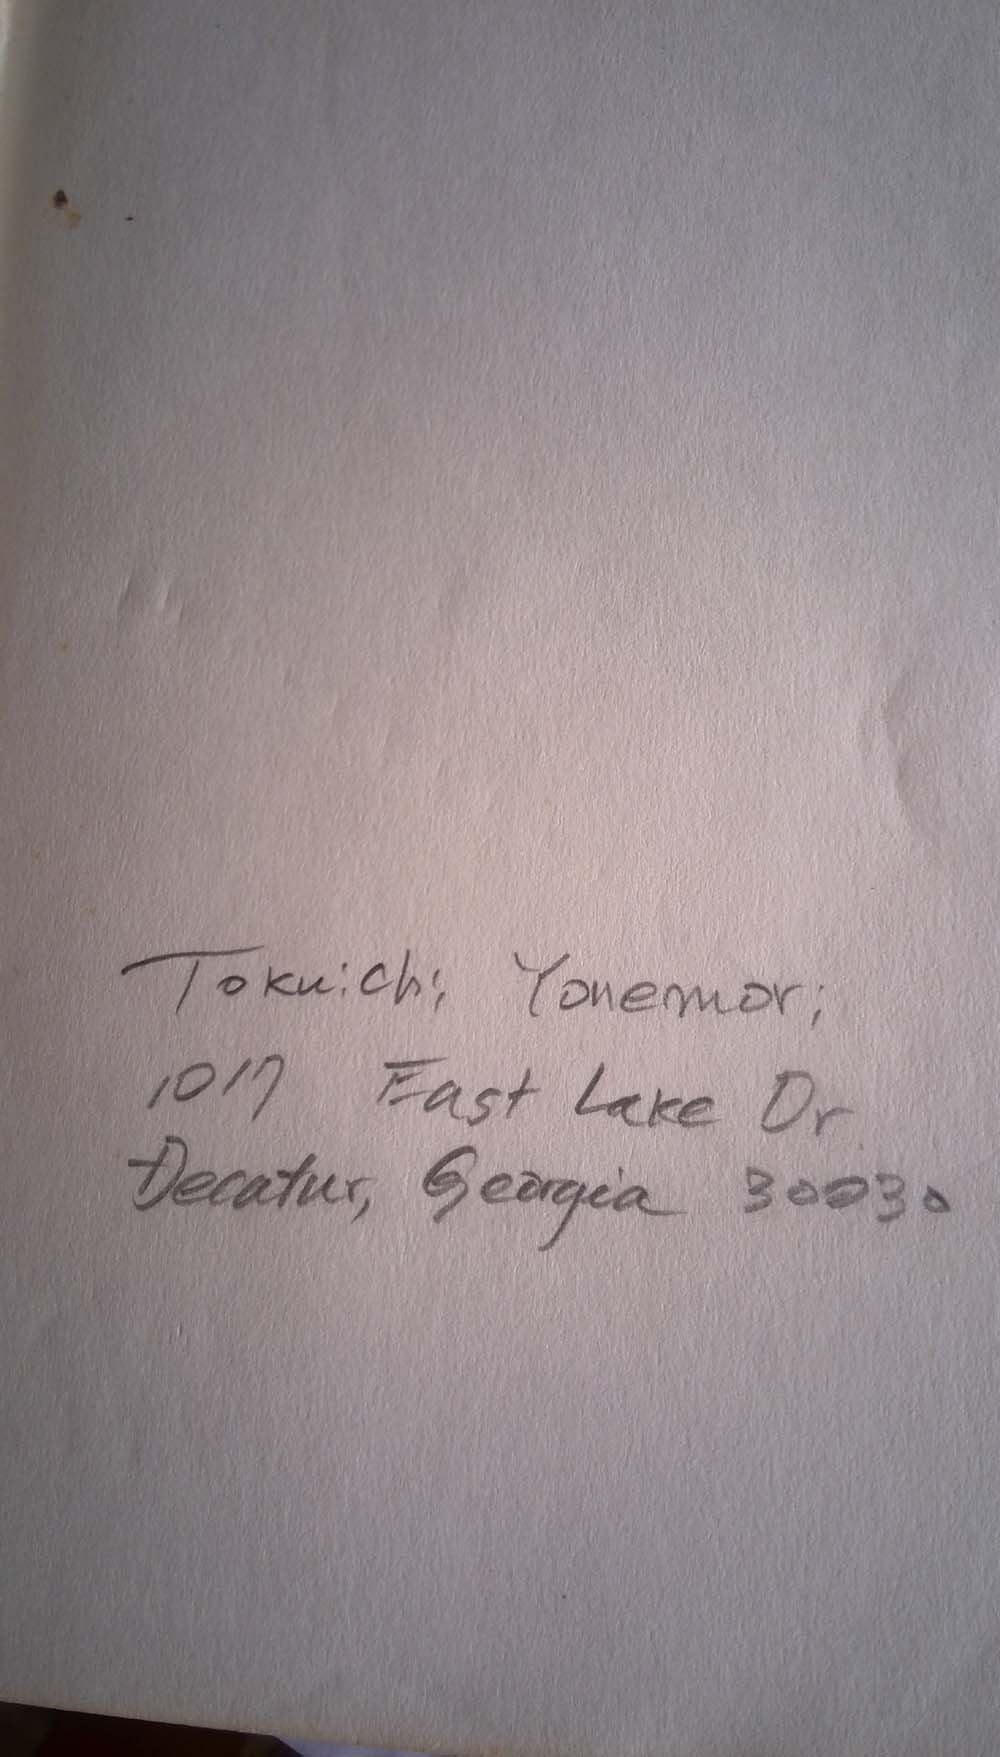 Tokuichi Yonemori
1017 East Lake Dr
Decatur, Georgia 30030